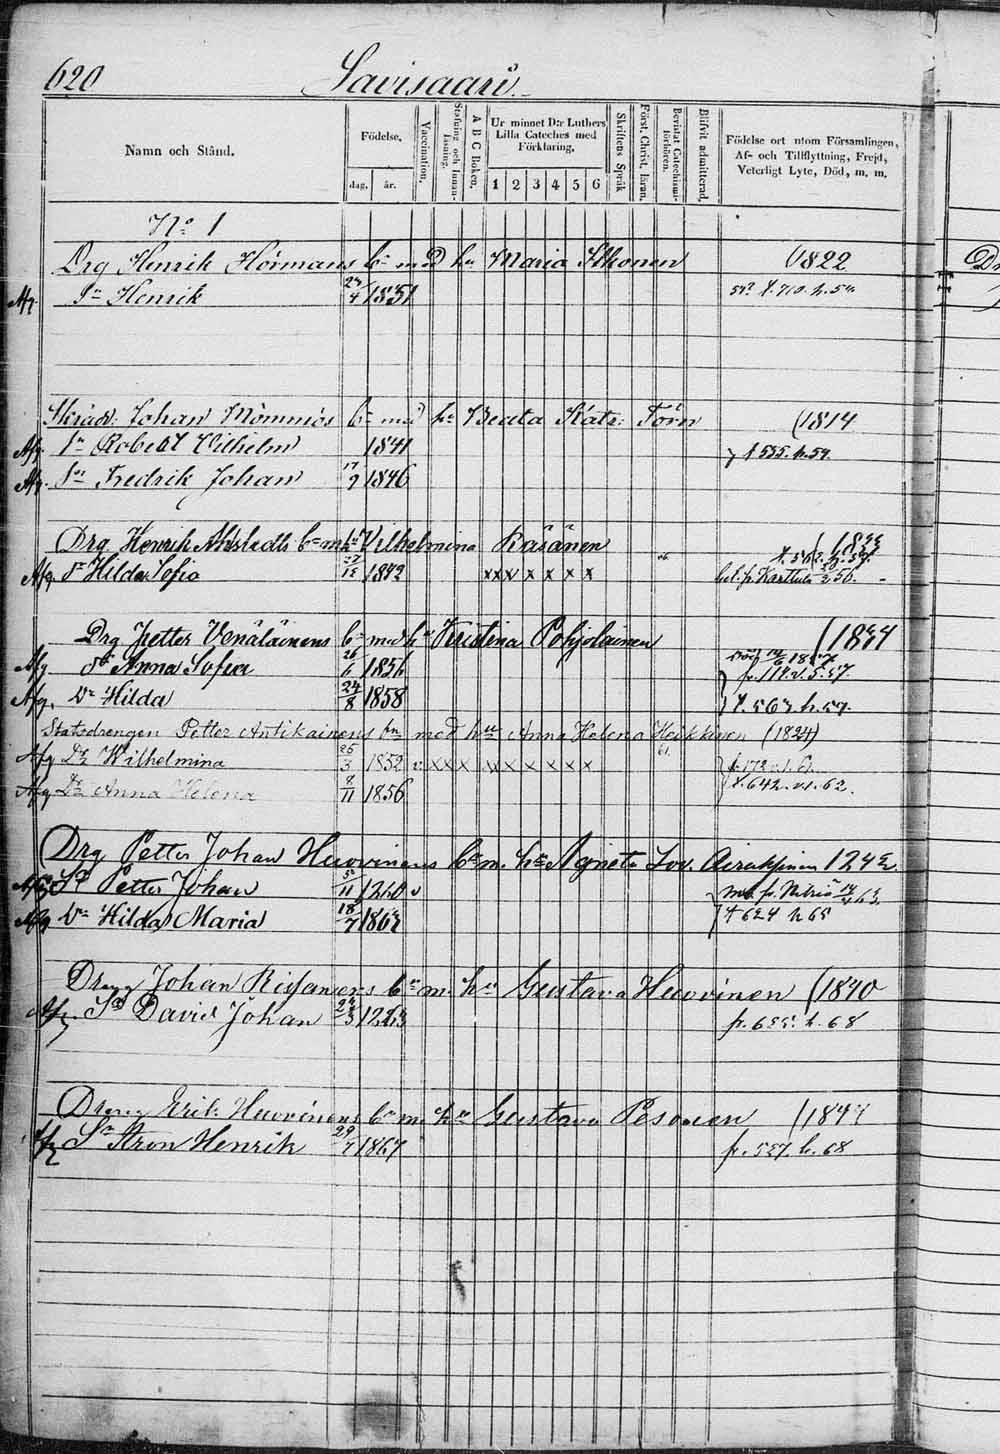 620 Savisaari.
Namn och Stånd.
Födelse.
dag. år.
Vaccination.
Stafning och Innan-läsning.
A B C Boken.
Ur minnet D:r Luthers Lilla Cateches med Förklaring.
1 2 3 4 5 6
Skriftens Språk
Först. Christ. läran.
Bevistat Catechismi-förhören.
Blifvit admitterad.
Födelse ort utom Församlingen,
Af- och Tillflyttning, Frejd,
Veterligt Lyte, Död, m. m.
No 1
Drg Henrik Hörmans bn med hu Maria Ilkonen (1822
Afg. Sn Henrik 1851 f. 710. h. 54
Skräd: Johan Mömmös bn med hu Beata Katr: Törn (1814
Afg. Sn Robert Vilhelm 1841 f 535. h. 59.
Afg. Sn Fredrik Johan 17/9 1846
Drg Henrik Ahlstedts bn m hu Vilhelmina Räsänen
Afg. Dr Hilda Sofia 1842 xxx x x x x Karttula 56.
Drg Petter Venäläinens bn med hu Kristina Pohjolainen
Afg. Dr Anna Sofia 26/6 1856
Afg. Dr Hilda 24/8 1858 f. 563 h. 59.
Statsdrengen Petter Antikainens bn med hu Anna Helena Heikkinen (1824)
Afg Dr Wilhelmina 25/3 1852 v xxx xx x x x x
Afg Dr Anna Helena 8/11 1856 f. 642. v. 1. 62.
Drg Petter Johan Huovinens bn m. hu Agneta Lov.
Afg Sn Petter Johan
Afg Dr Hilda Maria 18/7 f 624 h 65
Dreng Johan Risanens bn m. hu Gustava Huovinen (1840
Afg. Sn David Johan h. 68
Dreng Erik Huovinens bn m. hu Gustava Pesonen
Afg Sn Aron Henrik 1867 f. 527. h. 68